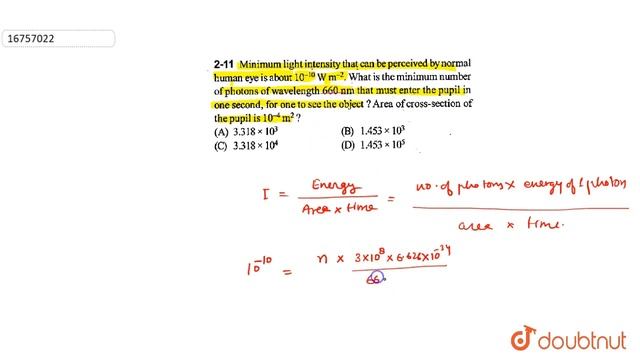 16757022
2-11 Minimum light intensity that can be perceived by normal
human eye is about 10⁻¹⁰ W m⁻². What is the minimum number
of photons of wavelength 660 nm that must enter the pupil in
one second, for one to see the object ? Area of cross-section of
the pupil is 10⁻⁴ m² ?
(A) 3.318 × 10³ (B) 1.453 × 10³
(C) 3.318 × 10⁴ (D) 1.453 × 10⁵
I = Energy / Area × time = no. of photons × energy of 1 photon / area × time.
10⁻¹⁰ = n × 3×10⁸ × 6.626×10⁻³⁴ / 66
doubtnut